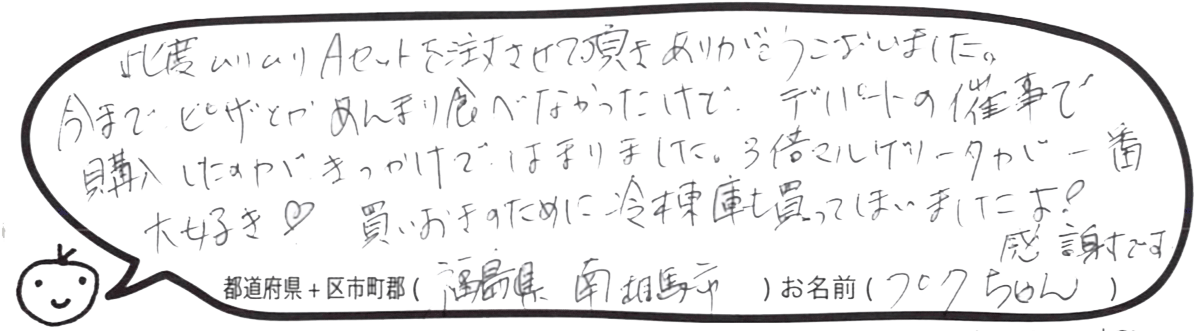 此度ムリムリAセットを注文させて頂きありがとうございました。
今までピザとかあんまり食べなかったけど、デパートの催事で
購入したのがきっかけではまりました。3倍マルゲリータが一番
大好き♡ 買いおきのために冷凍庫も買ってしまいましたよ!
感謝です
都道府県+区市町郡(福島県 南相馬市)お名前(フクちゃん)